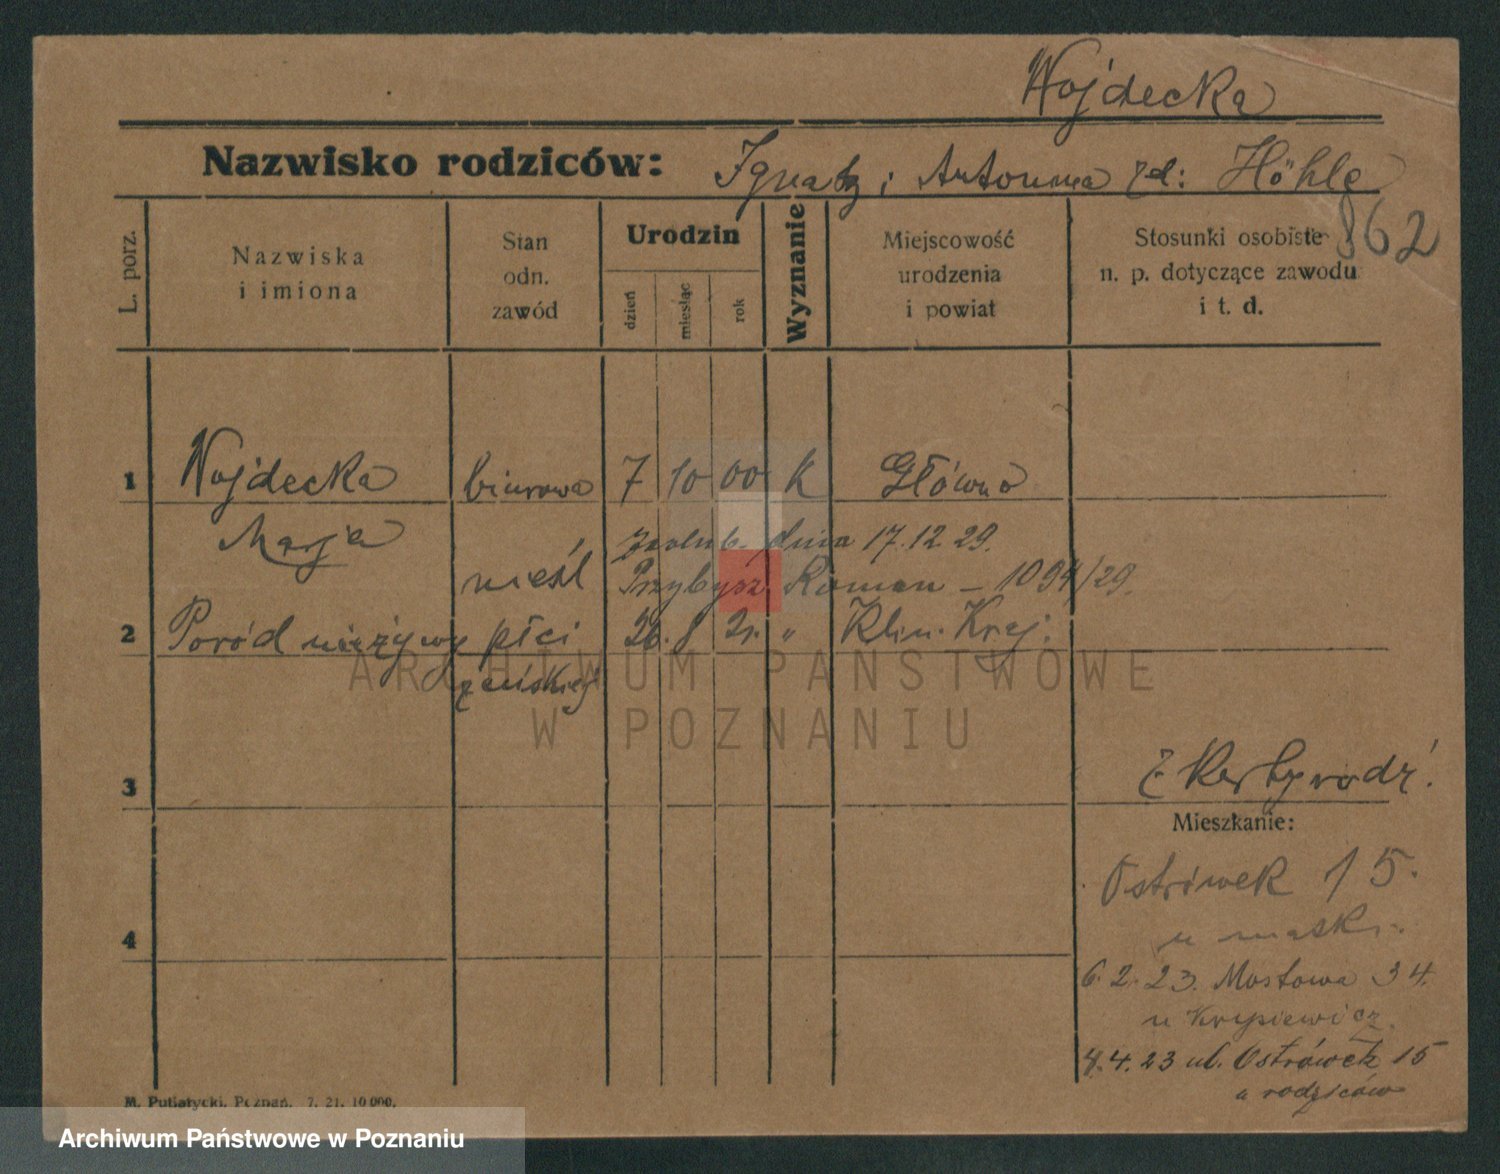 Wojdecka
Nazwisko rodziców: Ignatz i Antonina zd: Höhle
862
L. porz.
Nazwiska
i imiona
Stan
odn.
zawód
Urodzin
dzień
miesiąc
rok
Wyznanie
Miejscowość
urodzenia
i powiat
Stosunki osobiste
n. p. dotyczące zawodu
i t. d.
1 Wojdecka biurowa 7 10 00 K Główno
Marja
zaślub. dnia 17.12.29.
nieśl Przybysz Roman – 1094/29.
2 Poród nieżywy płci 26. 8 25. " Klin. Kraj.
żeńskiej
ARCHIWUM PAŃSTWOWE
W POZNANIU
3
z Karty rodz.
Mieszkanie:
Ostrówek 15.
4
6.2.23. Mostowa 34.
u Krysiewicz
4.4.23 ul. Ostrówek 15
u rodziców
M. Putiatycki, Poznań. 7. 21. 10000.
Archiwum Państwowe w Poznaniu